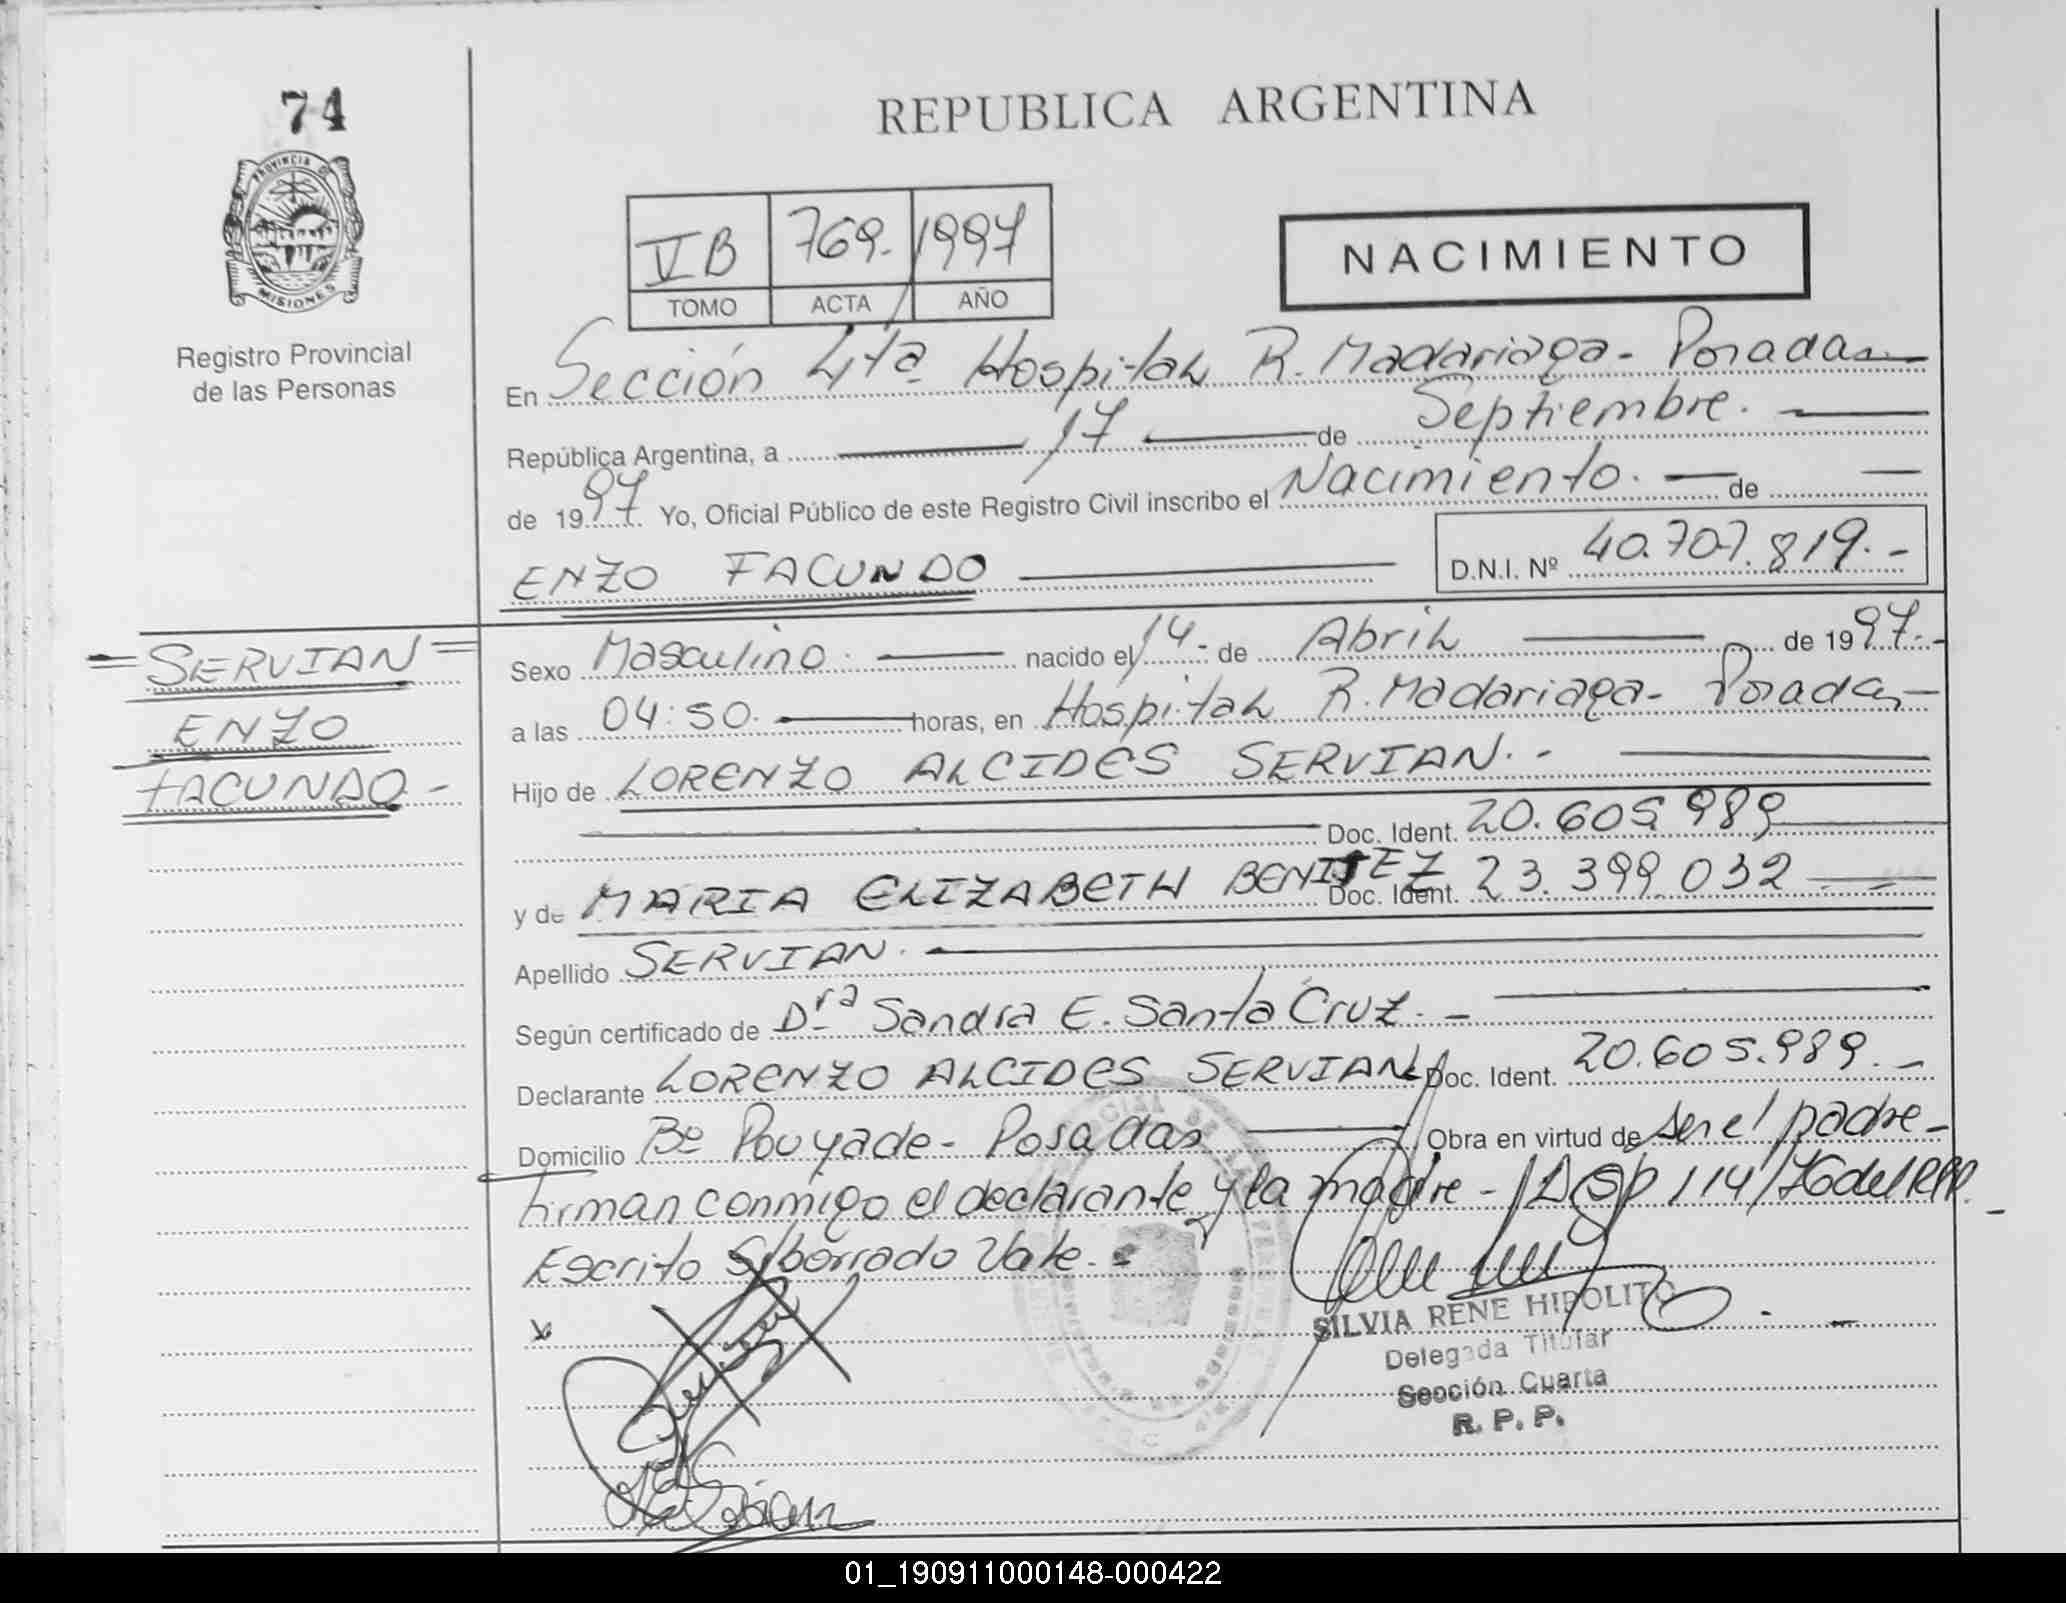 74
PROVINCIA DE
MISIONES
Registro Provincial
de las Personas
REPUBLICA ARGENTINA
VB 769.- 1997
TOMO ACTA AÑO
NACIMIENTO
En Sección 4ta Hospital R. Madariaga - Posadas
República Argentina, a 17 de Septiembre.
de 1997 Yo, Oficial Público de este Registro Civil inscribo el Nacimiento. - de -
ENZO FACUNDO
D.N.I. Nº 40.707.819.-
= SERVIAN =
ENZO
FACUNDO -
Sexo Masculino. nacido el 14 - de Abril de 1997.-
a las 04:50. horas, en Hospital R. Madariaga - Posadas -
Hijo de LORENZO ALCIDES SERVIAN. -
Doc. Ident. 20.605.989
y de MARIA ELIZABETH BENITEZ Doc. Ident. 23.399.032
Apellido SERVIAN.
Según certificado de Dra Sandra E. Santa Cruz. -
Declarante LORENZO ALCIDES SERVIAN Doc. Ident. 20.605.989. -
Domicilio Bº Pouyade - Posadas Obra en virtud de ser el padre -
firman conmigo el declarante y la madre - / DISP 114/76 del RPP. -
Escrito S/borrado Vale. -
SILVIA RENE HIPOLITO
Delegada Titular
Sección Cuarta
R. P. P.
01_190911000148-000422